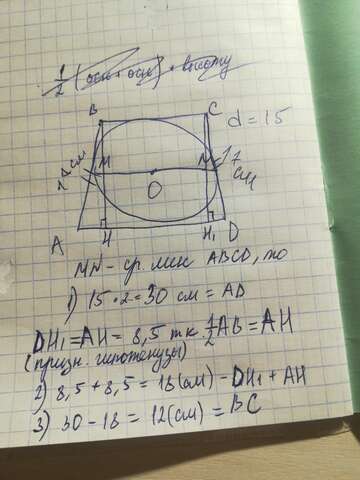 1/2 (осн + осн) • высоту
B C d = 15
17 см M N 17 см
O
A H H₁ D
MN - ср. лин ABCD, то
1) 15 • 2 = 30 см = AD
DH₁ = AH = 8,5 т.к. 1/2 AB = AH
(призн. гипотенузы)
2) 8,5 + 8,5 = 18 (см) - DH₁ + AH
3) 30 - 18 = 12 (см) = BC